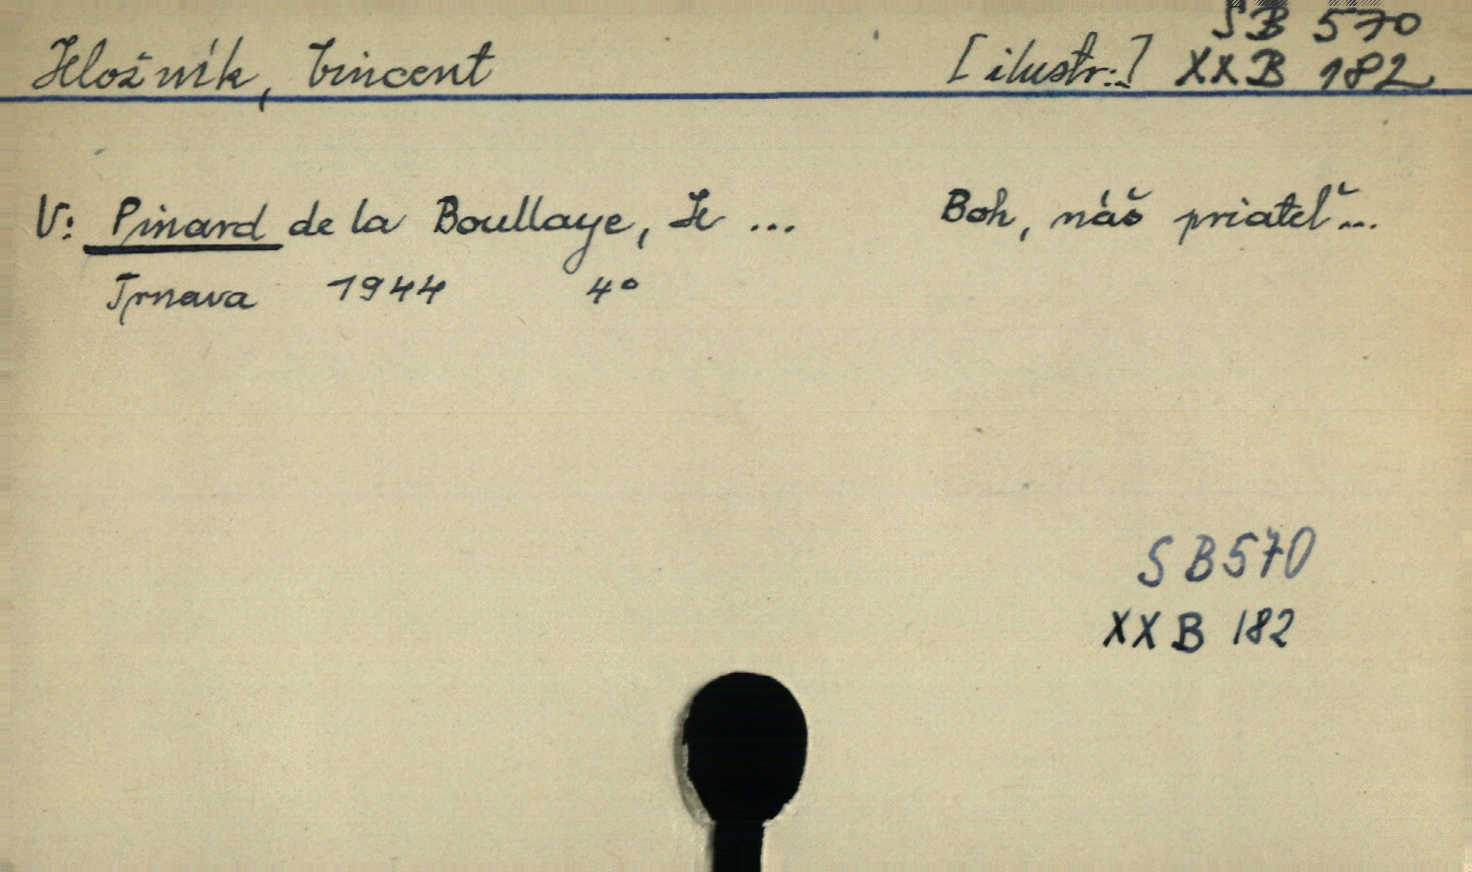 SB 570
Hložník, Vincent [ilustr.:] XXB 182
V: Pinard de la Boullaye, H ... Boh, náš priateľ...
Trnava 1944 4°
SB 570
XXB 182